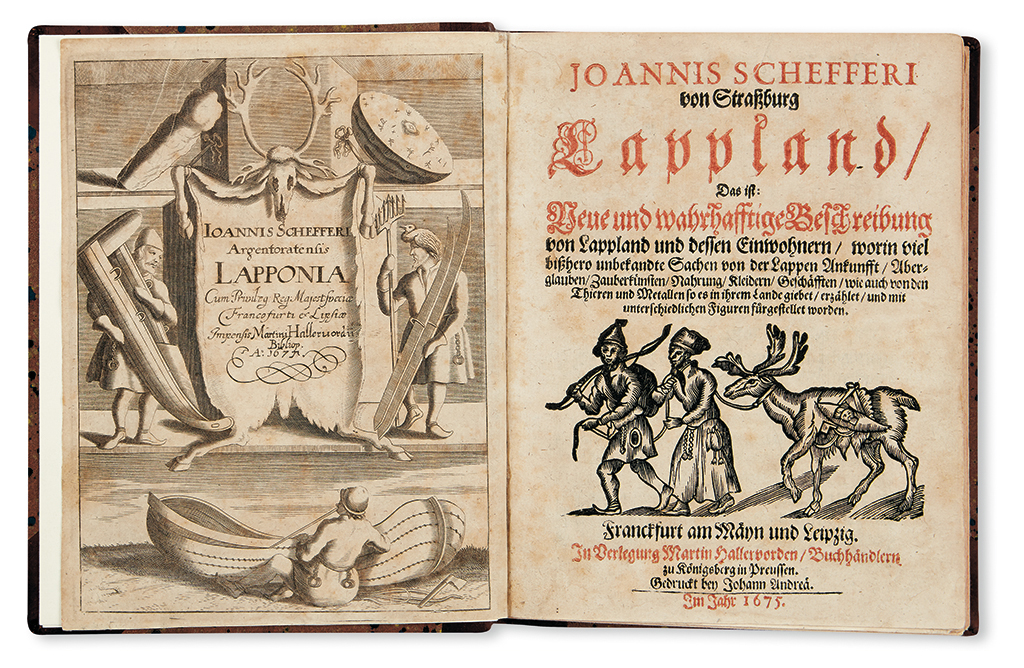 IOANNIS SCHEFFERI
Argentoratensis
LAPPONIA
Cum Privileg Reg. Majest
Francofurti & Lipsiæ
Impensis Martini Hallervordii
Bibliop.
JOANNIS SCHEFFERI
von Straßburg
Lappland/
Das ist:
Neue und wahrhafftige Beschreibung
von Lappland und dessen Einwohnern / worin viel
bißhero unbekandte Sachen von der Lappen Ankunfft / Aber-
glauben / Zauberkünsten / Nahrung / Kleidern / Geschäfften / wie auch von den
Thieren und Metallen so es in ihrem Lande giebet / erzählet / und mit
unterschiedlichen Figuren fürgestellet worden.
Franckfurt am Mäyn und Leipzig.
In Verlegung Martin Hallervorden / Buchhändlern
zu Königsberg in Preussen.
Gedruckt bey Johann Andreä.
Im Jahr 1675.